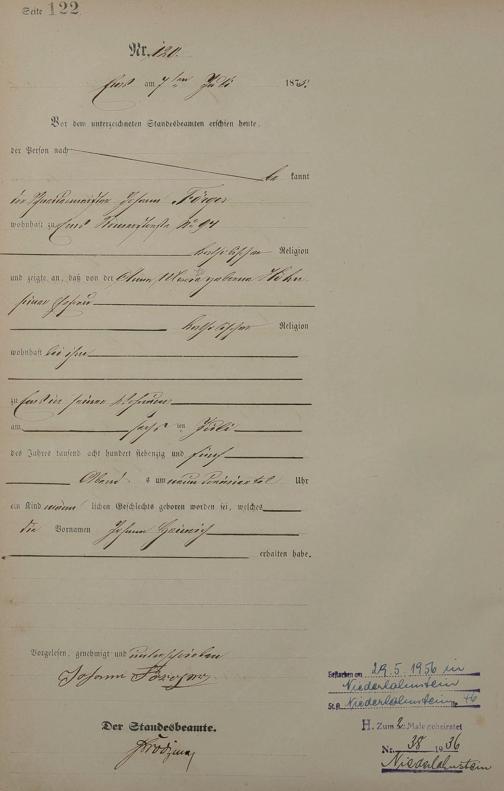 Seite 122.
Nr. 120.
Ems am 7ten Juli 1875.
Vor dem unterzeichneten Standesbeamten erschien heute,
der Person nach
be kannt
der Johann
wohnhaft zu Ems No 94
katholischer Religion
und zeigte an, daß von der Anna Maria geborene Höhn
seiner Ehefrau
katholischer Religion
wohnhaft bei ihm
zu Ems in seiner Wohnung
am sechs ten Juli
des Jahres tausend acht hundert siebenzig und fünf
Abend s um neun Uhr
ein Kind männ lichen Geschlechts geboren worden sei, welches
die Vornamen Johann Heinrich
erhalten habe.
Vorgelesen, genehmigt und unterschrieben
Johann
Der Standesbeamte.
Gestorben am 29.5.1956 in
Niederlahnstein
St.A. Niederlahnstein 46
H. Zum 2. Male geheiratet
Nr. 38 1936
Niederlahnstein